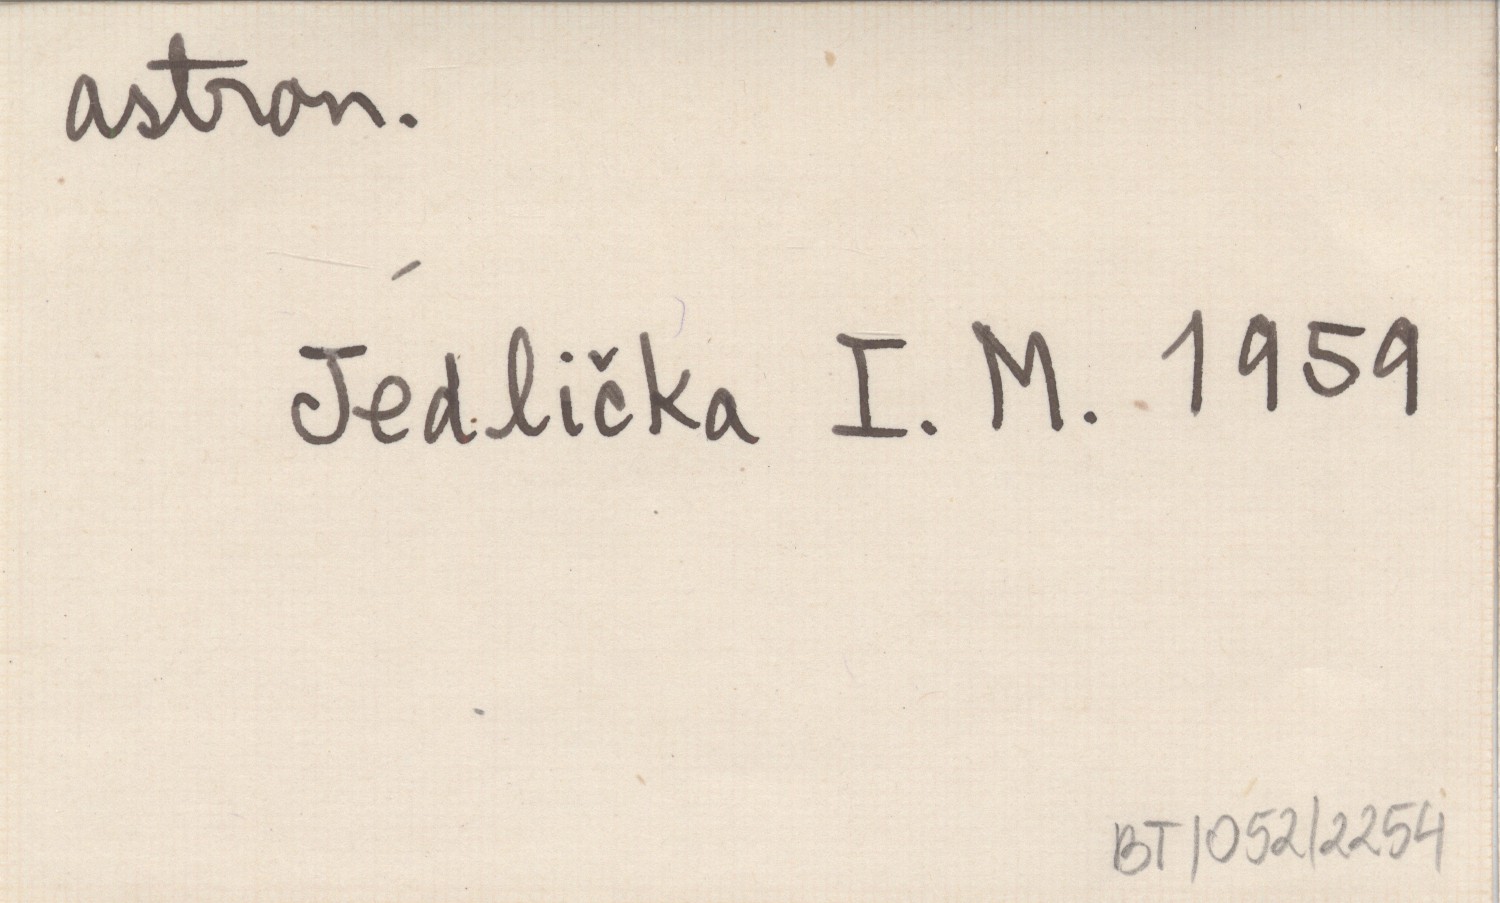 astron.
Jedlička I. M. 1959
BT/052/2254